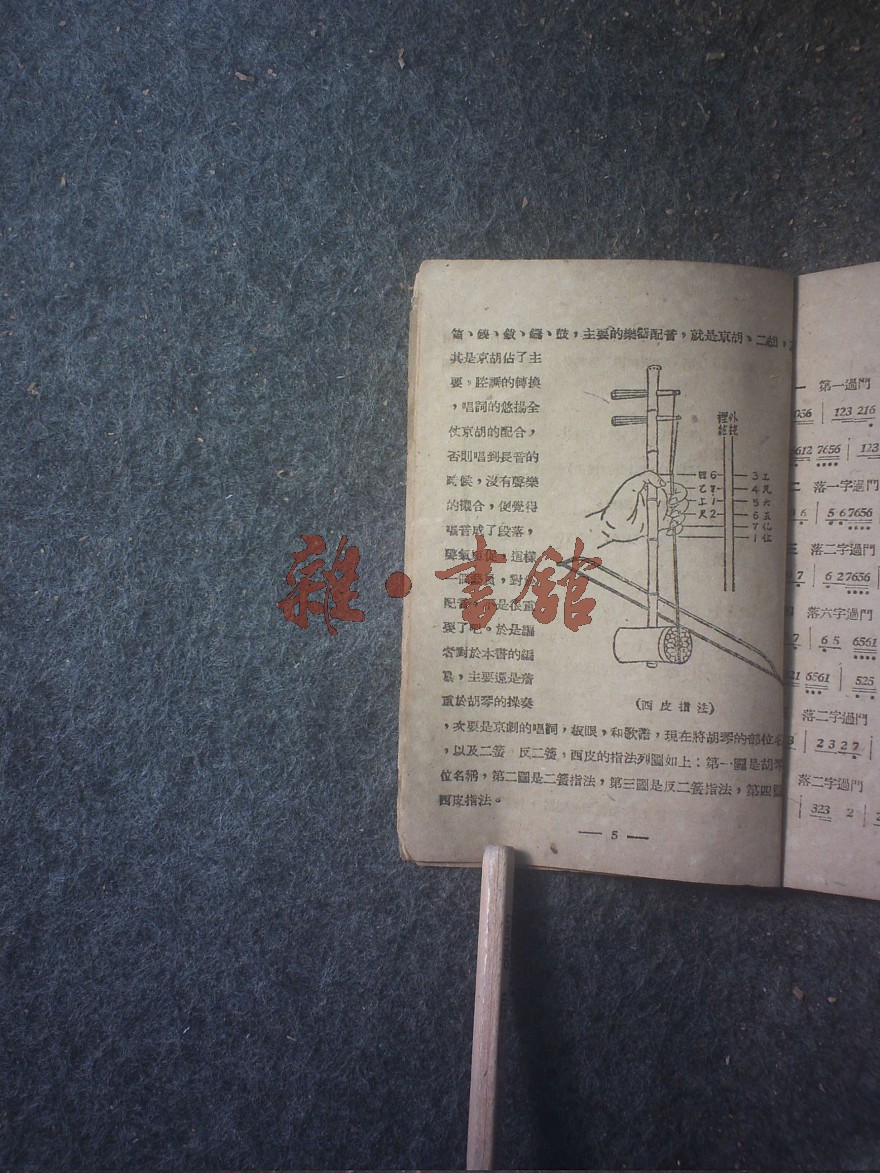 主要的樂器配音，就是京胡、二胡，
其是京胡佔了主
要，腔調的轉換
，唱詞的悠揚全
仗京胡的配合，
否則唱到長音的
時候，沒有聲樂
的襯合，便覺得
唱音成了段落，
配音，是很重
要了吧。於是編
者對於本書的編
，主要還是着
重於胡琴的操奏
，次要是京劇的唱詞，板眼，和歌譜，現在將胡琴的部位名
，以及二簧 反二簧，西皮的指法列圖如上：第一圖是胡琴
位名稱，第二圖是二簧指法，第三圖是反二簧指法，第四圖
西皮指法。
裡絃
外絃
四 6 3 工
乙 7 4 凡
上 1 5 六
尺 2 6 五
7 亿
1 仩
(西皮指法)
— 5 —
第一過門
7656 | 123 216
6612 7656 | 123
落一字過門
5 6 7656
落二字過門
6 2 7656
落六字過門
6 5 6561
6561 | 525
落二字過門
2 3 2 7
落二字過門
323 2
雜·書館